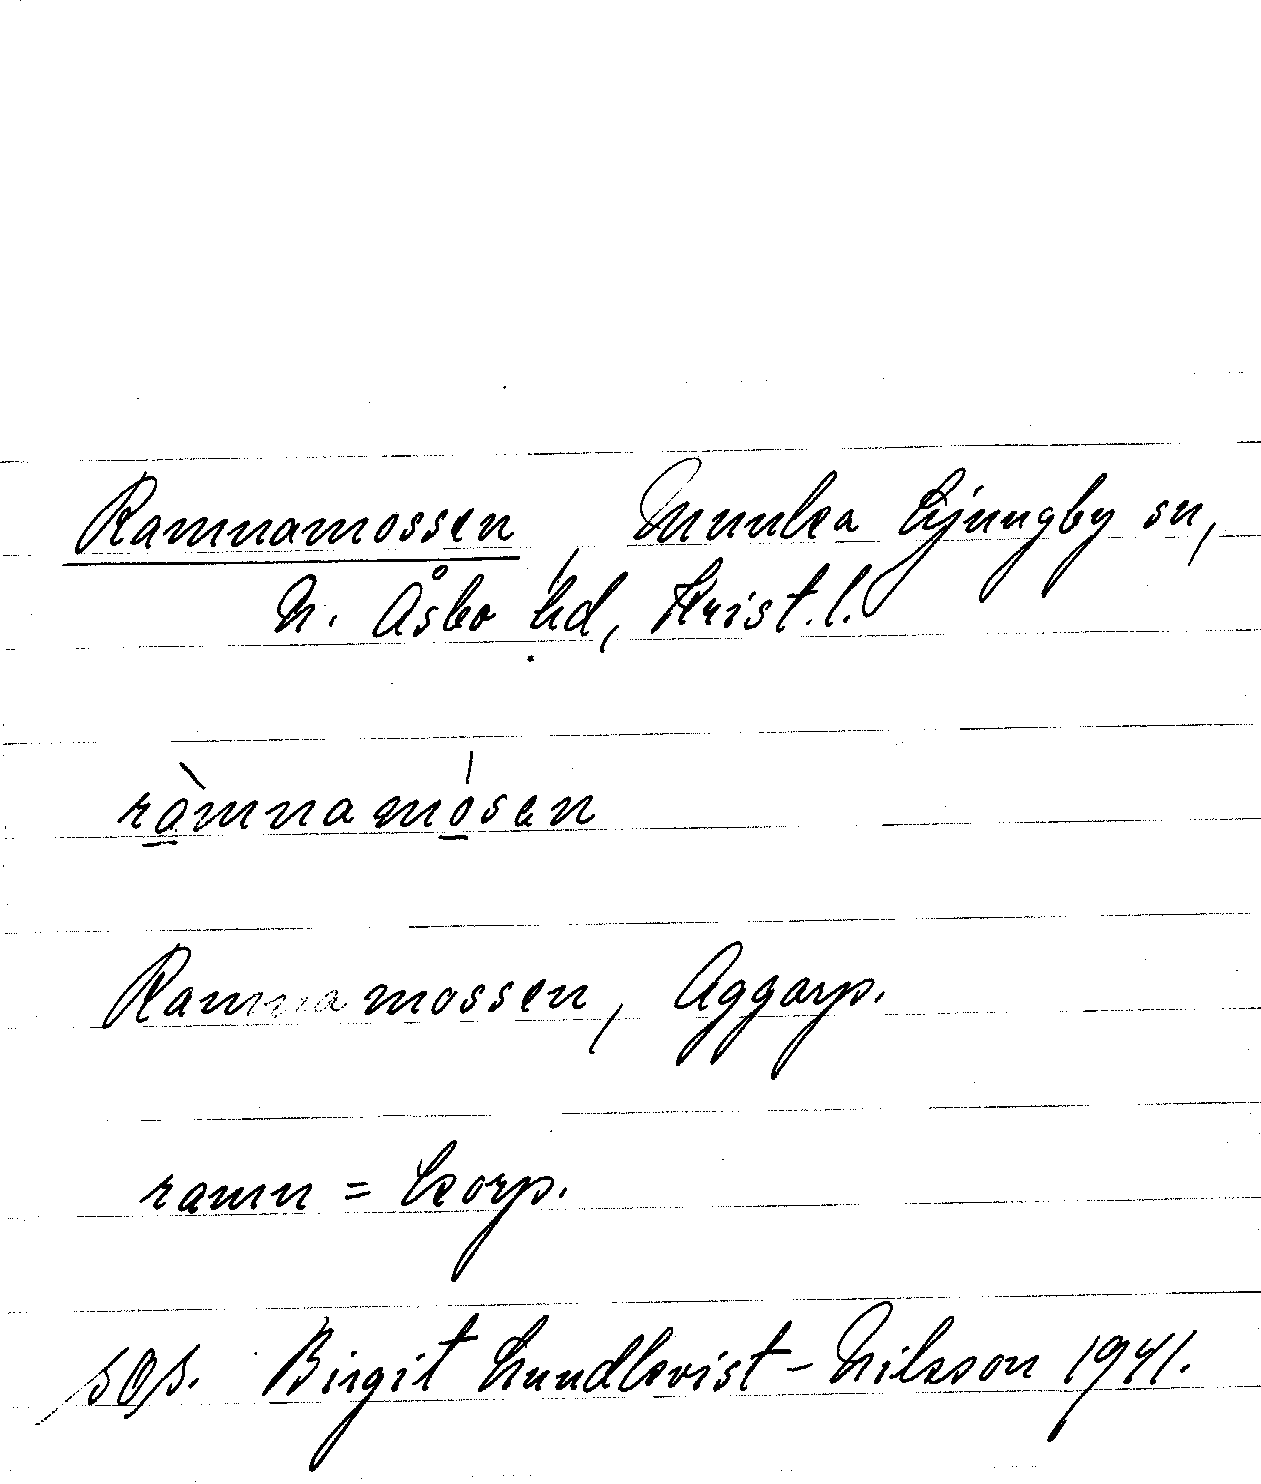 Ramnamossen, Munka Ljungby sn,
N. Åsbo hd, Krist. l.
ràmnamósen
Ramnamossen, Aggarp.
ramn = korp.
Birgit Lundkvist-Nilsson 1941.